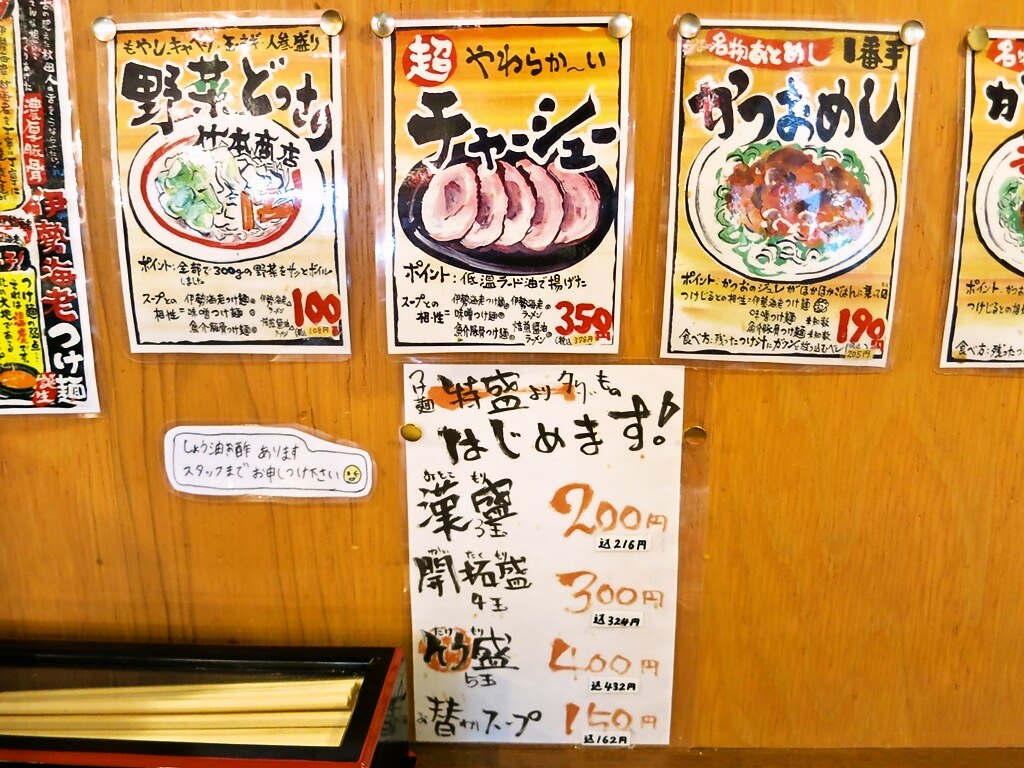 濃厚豚骨
伊勢海老つけ麺
誕生
もやし・キャベツ・玉ネギ・人参盛り
野菜どっさり
竹本商店
ポイント:全部で300gの野菜をサッとボイル
しました。
スープとの
相性=
伊勢海老つけ麺◎
味噌つけ麺◎
魚介豚骨つけ麺◎
伊勢海老
ラーメン
100円
(税込)108円
超
やわらか〜い
チャーシュー
ポイント:低温ラード油で揚げた
スープとの
相性=
伊勢海老つけ麺◎
味噌つけ麺◎
魚介豚骨つけ麺◎
伊勢海老◎
ラーメン
焙煎醤油◎
ラーメン
350円
(税込)378円
名物おとめし
1番手
かつおめし
ポイント:かつおのジュレがほかほかごはんに乗って
つけじるとの相性=伊勢海老つけ麺
味噌つけ麺 未知数
魚介豚骨つけ麺 未知数
食べ方:残ったつけ汁にガツンと放り込むべし
190円
(税込)205円
しょう油お酢 あります
スタッフまで お申しつけ下さい
つけ麺
特盛より
はじめます!
漢盛
おとこ もり
3玉
200円
込216円
開拓盛
かい たく もり
4玉
300円
込324円
たけ もり
盛
5玉
400円
込432円
お替わりスープ
150円
込162円